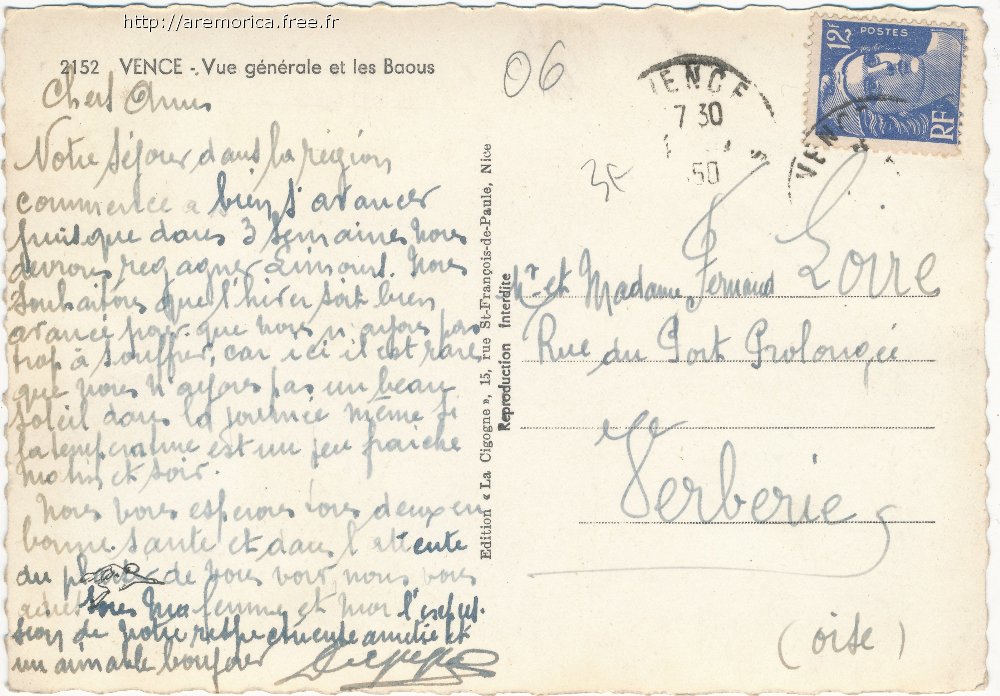 http://aremorica.free.fr
2152 VENCE - Vue générale et les Baous
Chers Amis
Notre séjour dans la région
commence a bien s'avancer
puisque dans 3 semaines nous
devrons regagner Limours. Nous
souhaitons que l'hiver soit bien
avancé pour que nous n'ayons pas
trop à souffrir, car ici il est rare
que nous n'ayons pas un beau
soleil dans la journée même si
la température est un peu fraiche
matin et soir.
Nous vous esperons tous deux en
bonne santé et dans l'attente
du plaisir de vous voir, nous vous
tous ma femme et moi l'expres-
sion de notre respectueuse amitié et
un aimable bonjour
Edition « La Cigogne », 15, rue St-François-de-Paule, Nice
Reproduction Interdite
06
3F
VENCE
7 30
50
12F
POSTES
RF
VENCE
Mr et Madame Fernand Lorre
Rue du Port Prolongée
Verberie
(oise)